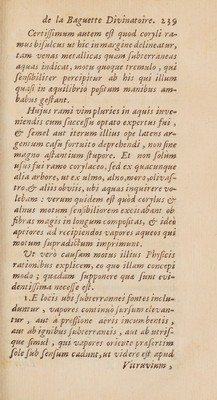 de la Baguette Divinatoire. 239
Certissimum autem est quod coryli ra-
mus bisulcus ut hic in margine delineatur,
tam venas metallicas quam subterraneas
aquas indicat, motu quoque tremulo, qui
sensibiliter percipitur ab his qui illum
quasi in æquilibrio positum manibus am-
babus gestant.
Hujus rami vim pluries in aquis inve-
niendis cum successu optato expertus fui,
& semel aut iterum illius ope latens ar-
gentum casu fortuito deprehendi, non sine
magno astantium stupore. Et non solum
usus fui ramo corylaceo, sed ex quacunque
alia arbore, ut ex ulmo, alno, moro, olivas-
tro, & aliis obviis, ubi aquas inquirere vo-
lebam : verum quidem est quod corylus &
alnus motum sensibiliorem excitabant ob
fibras magis in longum compositas, & ideo
aptiores ad recipiendos vapores aqueos qui
motum supradictum imprimunt.
Ut vero causam motus illius Physicis
rationibus explicem, eo quo illam concepi
modo ; quædam supponere quæ sunt evi-
dentissima necesse est.
1. E locis ubi subterranei fontes inclu-
duntur, vapores continuò sursum elevan-
tur, aut a pressione aeris incumbentis,
aut ab ignibus subterraneis, aut ab utris-
que simul, qui vapores oriente præsertim
sole sub sensum cadunt, ut videre est apud
Vitruvium,